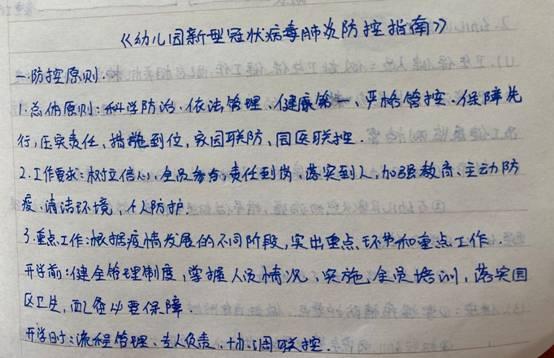 《幼儿园新型冠状病毒肺炎防控指南》
一.防控原则.
1.总体原则:科学防治.依法管理、健康第一、严格管控.保障先
行,压实责任、措施到位,家园联防、园医联控.
2.工作要求:树立信心,全员参与,责任到岗、落实到人,加强教育、主动防
疫、清洁环境,个人防护.
3.重点工作:根据疫情发展的不同阶段,突出重点环节和重点工作.
开学前:健全管理制度,掌握人员情况、实施全员培训,落实园
区卫生,配备必要保障.
开学时:流程管理、专人负责、联控.